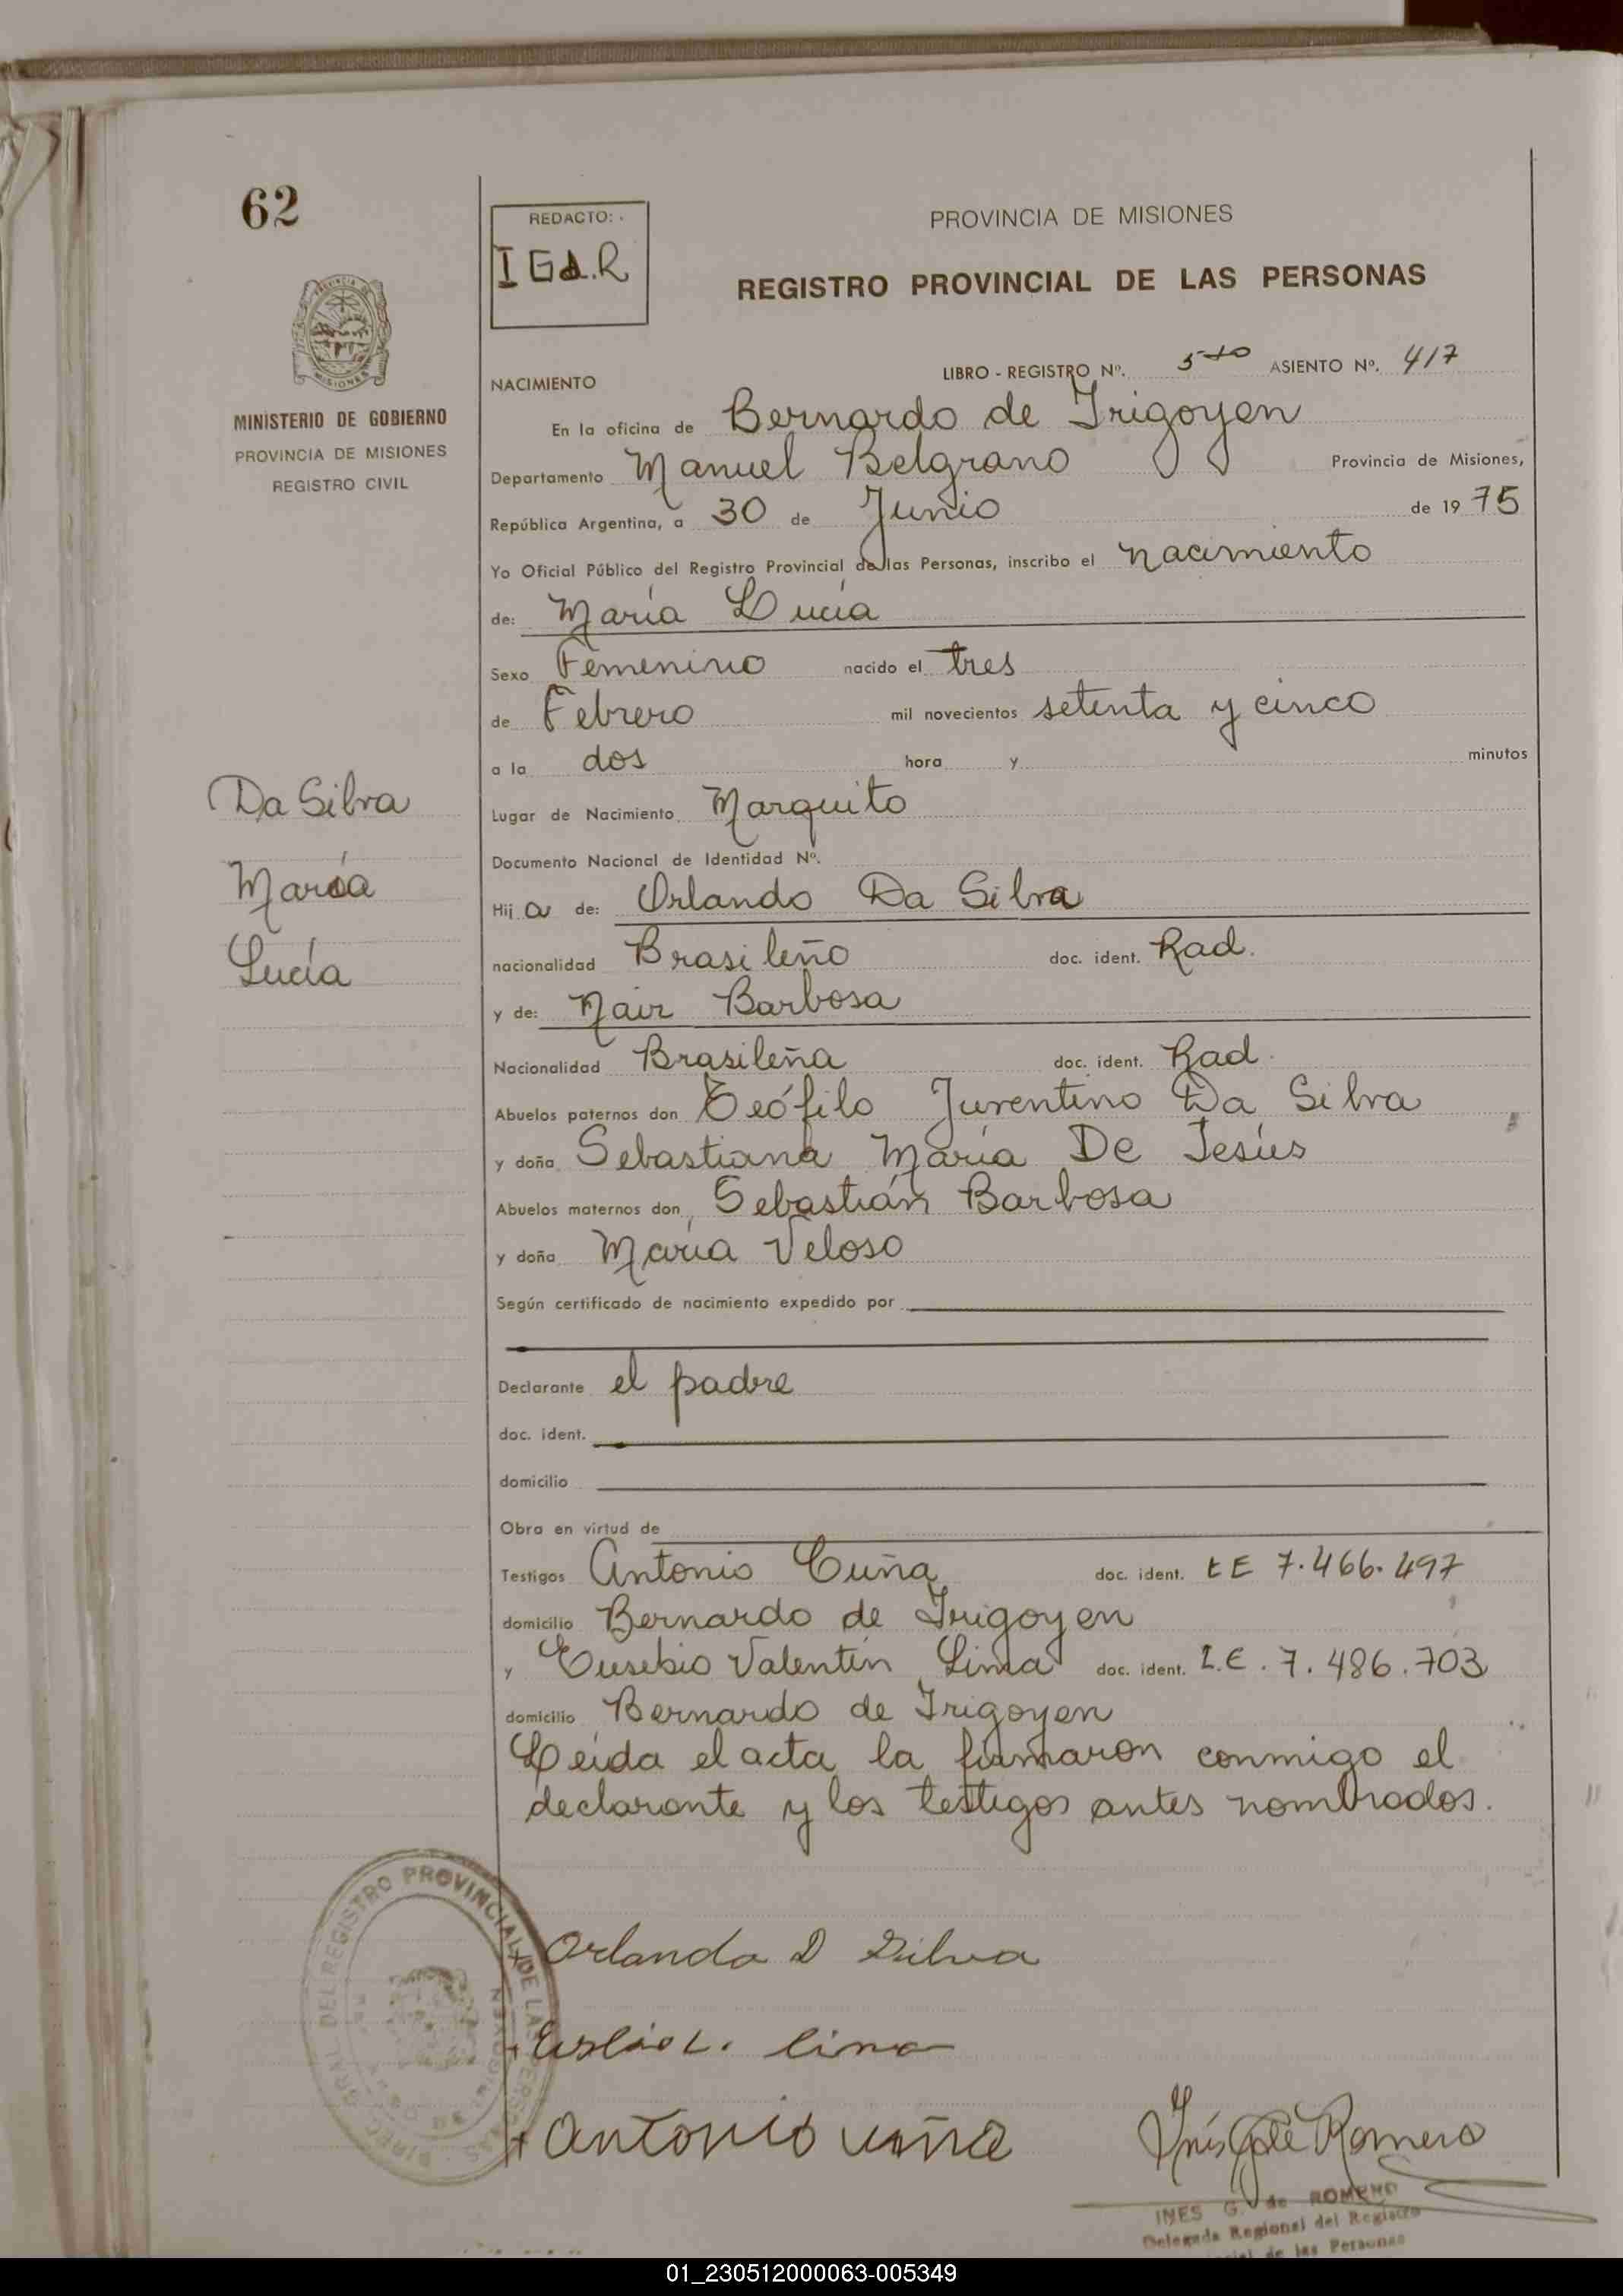 62
REDACTO:
I G d.R
PROVINCIA DE MISIONES
REGISTRO PROVINCIAL DE LAS PERSONAS
MISIONES
MINISTERIO DE GOBIERNO
PROVINCIA DE MISIONES
REGISTRO CIVIL
NACIMIENTO LIBRO - REGISTRO Nº. ASIENTO Nº. 417
En la oficina de Bernardo de Irigoyen
Departamento Manuel Belgrano Provincia de Misiones,
República Argentina, a 30 de Junio de 1975
Yo Oficial Público del Registro Provincial de las Personas, inscribo el nacimiento
de: María Lucía
Sexo Femenino nacido el tres
de Febrero mil novecientos setenta y cinco
a la dos hora y minutos
Lugar de Nacimiento Marquito
Documento Nacional de Identidad Nº.
Hija de: Orlando Da Silva
nacionalidad Brasileño doc. ident. Rad.
y de: Nair Barbosa
Nacionalidad Brasileña doc. ident. Rad.
Abuelos paternos don Teófilo Juventino Da Silva
y doña Sebastiana María De Jesús
Abuelos maternos don, Sebastián Barbosa
y doña María Veloso
Según certificado de nacimiento expedido por
Declarante el padre
doc. ident.
domicilio
Obra en virtud de
Testigos Antonio Cuña doc. ident. LE 7.466.497
domicilio Bernardo de Irigoyen
y Eusebio Valentín Lima doc. ident. L.E. 7.486.703
domicilio Bernardo de Irigoyen
Leída el acta la firmaron conmigo el
declarante y los testigos antes nombrados.
Da Silva
María
Lucía
DIREC. GRAL DEL REGISTRO PROVINCIAL DE LAS PERSONAS
Orlando D Silva
Lima
Antonio
Inés G de Romero
INES G. de ROMERO
Delegada Regional del Registro
de las Personas
01_230512000063-005349